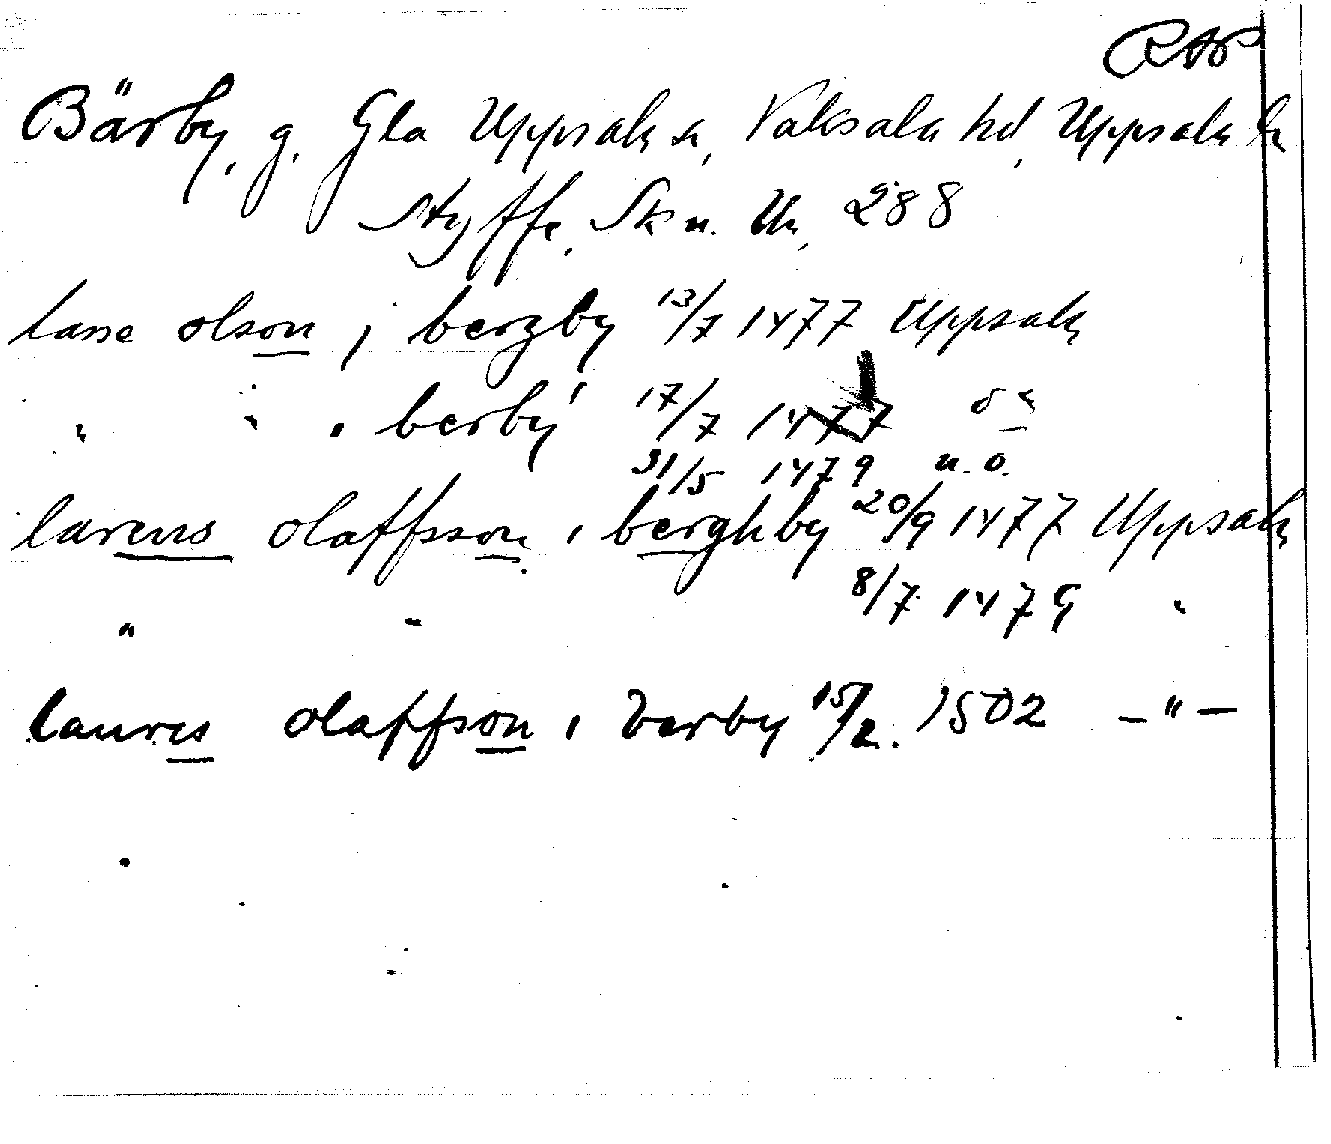 RAP
Bärby, g. Gla Uppsala sn, Vaksala hd, Uppsala ln
Styffe, Sk u. Un, 288
lasse olson j bergby 13/7 1477 Uppsala
" " " berby 17/7 1477 o a
31/5 1479 u. o.
larens olaffsson i berghby 20/9 1477 Uppsala
" " 8/7 1479 "
laures olaffson i berby 15/2. 1502 – " –